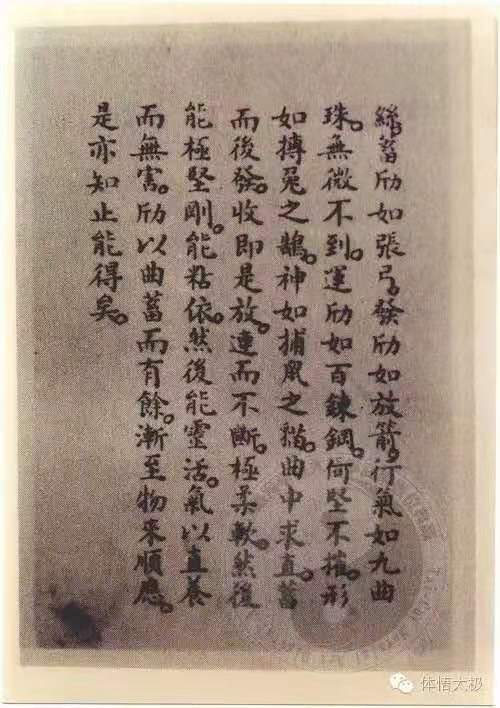 絲。蓄劤如張弓。發劤如放箭。行氣如九曲
珠。無微不到。運劤如百鍊鋼。何堅不摧。形
如搏兔之鶻。神如捕鼠之猫。曲中求直。蓄
而後發。收即是放。連而不斷。極柔軟。然後
能極堅剛。能粘依。然後能靈活。氣以直養
而無害。劤以曲蓄而有餘。漸至物來順應。
是亦知止能得矣。
体悟太极